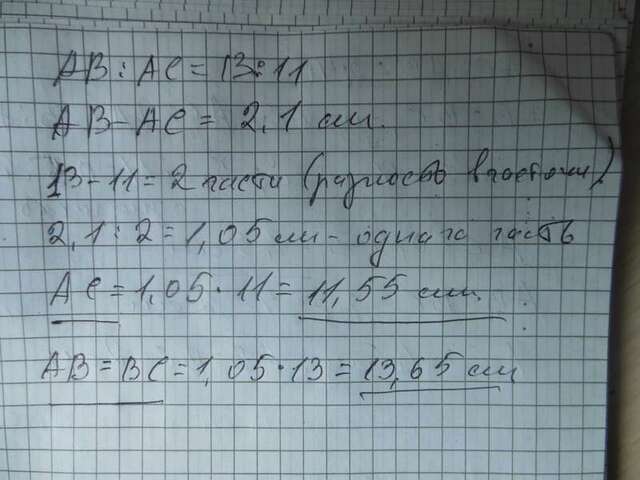 AB : AC = 13 : 11
AB - AC = 2,1 см.
13 - 11 = 2 части (разность в частях)
2,1 : 2 = 1,05 см - одна часть
AC = 1,05 · 11 = 11,55 см.
AB = BC = 1,05 · 13 = 13,65 см